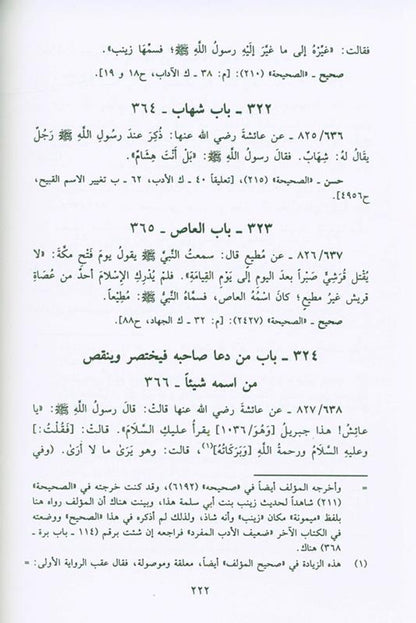 فقالت: «غيِّرْهُ إلى ما غيَّرَ إلَيْهِ رسولُ اللَّهِ ﷺ؛ فسمِّهَا زينب».
صحيح ـ «الصحيحة» (٢١٠): [م: ٣٨ ـ ك الآداب، ح١٨ و ١٩].
٣٢٢ ـ باب شهاب ـ ٣٦٤
٨٢٥/٦٣٦ ـ عن عائشةَ رضي الله عنها: ذُكِرَ عندَ رسُولِ اللَّهِ ﷺ رَجُلٌ
يقالُ لهُ: شِهَابٌ. فقالَ رسولُ اللَّهِ ﷺ: «بَلْ أَنْتَ هِشَامٌ».
حسن ـ «الصحيحة» (٢١٥)، [تعليقاً ٤٠ ـ ك الأدب، ٦٢ ـ ب تغيير الاسم القبيح،
ح٤٩٥٦].
٣٢٣ ـ باب العاص ـ ٣٦٥
٨٢٦/٦٣٧ ـ عن مُطيعٍ قال: سمعتُ النَّبيَّ ﷺ يقولُ يومَ فَتْحِ مكَّةَ: «لا
يُقْتَل قُرَشِيٌّ صَبْراً بعدَ اليومِ إلى يَوْمِ القِيامَةِ». فلمْ يُدْرِكِ الإسْلامَ أحدٌ من عُصَاةِ
قريش غيرُ مطيعٍ؛ كانَ اسْمُهُ العاص، فسمَّاهُ النَّبيُّ ﷺ: مُطِيْعاً.
صحيح ـ «الصحيحة» (٢٤٢٧): [م: ٣٢ ـ ك الجهاد، ح٨٨].
٣٢٤ ـ باب من دعا صاحبه فيختصر وينقص
من اسمه شيئاً ـ ٣٦٦
٨٢٧/٦٣٨ ـ عن عائشةَ رضي الله عنها قالتْ: قالَ رسولُ اللَّهِ ﷺ: «يا
عائِشُ! هذا جبريلُ [وَهُوَ/١٠٣٦] يقرأُ عليكِ السَّلامَ». قالتْ: [فَقُلْتُ:]
وعليهِ السَّلامُ ورحمةُ اللَّهِ [وَبَرَكَاتُهُ](١)، قالت: وهو يَرَىٰ ما لا أرَىٰ. (وفي
= وأخرجه المؤلف أيضاً في «صحيحه» (٦١٩٢)، وقد كنت خرجته في «الصحيحة»
(٢١١) شاهداً لحديث زينب بنت أبي سلمة هذا، وبينت هناك أن المؤلف رواه هنا
بلفظ «ميمونة» مكان «زينب» وأنه شاذ، ولذلك لم أذكره في هذا «الصحيح» ووضعته
في الكتاب الآخر «ضعيف الأدب المفرد» فراجعه إن شئت برقم (١١٤ ـ باب برة ـ
٣٦٨) هناك.
(١) هذه الزيادة في «صحيح المؤلف» أيضاً، معلقة وموصولة، فقال عقب الرواية الأولى: =
٢٢٢